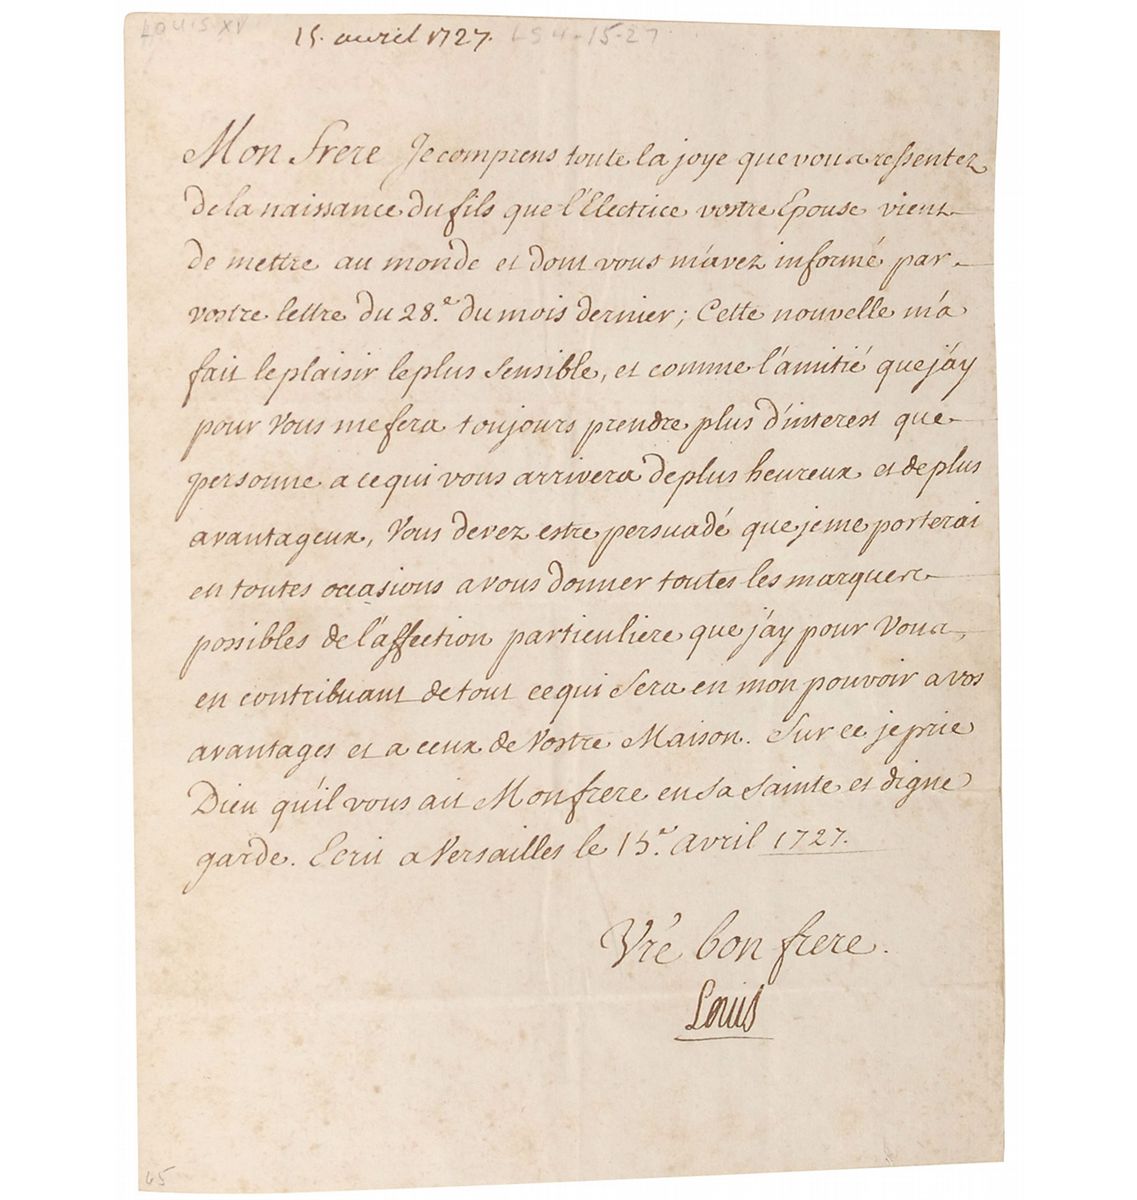 LOUIS XV 15. avril 1727. LS 4-15-27
Mon frere Je comprens toute la joye que vous ressentez
de la naissance du fils que l'Electrice vostre Epouse vient
de mettre au monde et dont vous m'avez informé par
vostre lettre du 28.e du mois dernier; Cette nouvelle m'a
fait le plaisir le plus sensible, et comme l'amitié que j'ay
pour Vous me fera toujours prendre plus d'interest que
personne a ce qui vous arrivera de plus heureux et de plus
avantageux, Vous devez estre persuadé que je me porterai
en toutes occasions a vous donner toutes les marques
possibles de l'affection particuliere que j'ay pour Vous,
en contribuant de tout ce qui sera en mon pouvoir a vos
avantages et a ceux de Vostre Maison. Sur ce je prie
Dieu qu'il vous ait Mon frere en sa sainte et digne
garde. Ecrit a Versailles le 15.e avril 1727.
Vre bon frere.
Louis
65